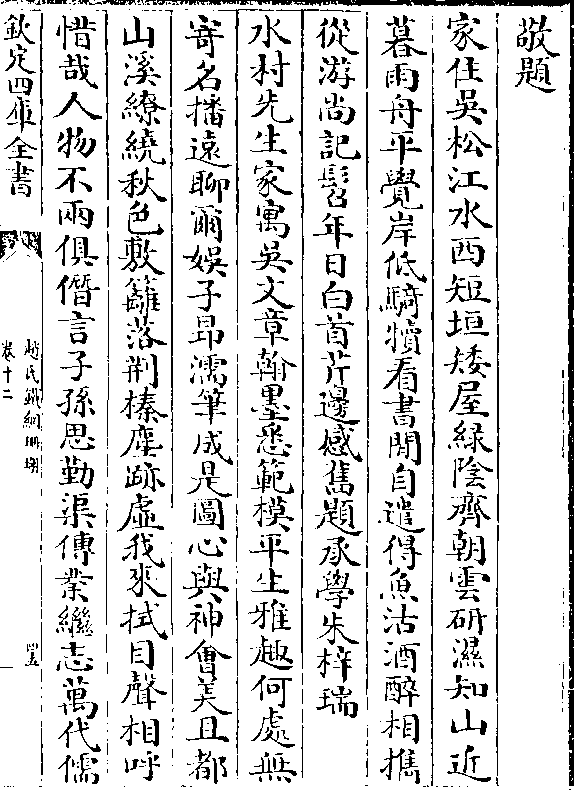 敬題
家住吳松江水西短垣矮屋緑陰齊朝雲研濕知山近
暮雨舟平覺岸低騎犢看書閒自遣得魚沽酒醉相携
從游尚記髫年日白首芹邊感舊題承學朱梓瑞
水村先生家寓吳文章翰墨悉範模平生雅趣何處無
寄名播遠聊爾娛子昻濡筆成是圖心與神會美且都
山溪繚繞秋色敷籬落荆榛塵跡虛我來拭目聲相呼
惜哉人物不兩俱僭言子孫思勤渠傳業繼志萬代儒
欽定四庫全書
趙氏鐵網珊瑚
卷十二